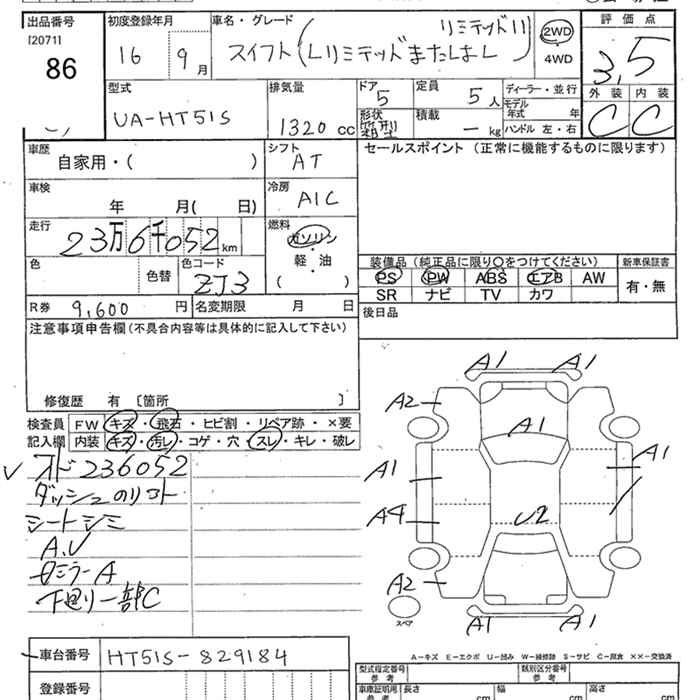 出品番号 初度登録年月 車名・グレード リミテッドII 評価点
[2071] 16 9月 スイフト(Lリミテッドまたは 2WD
86 4WD 3.5
型式 排気量 ドア 定員 ディーラー・並行 外装 内装
モデル年式 年
UA-HT51S 1320cc 5 5人 C C
形状 積載 ーkg ハンドル 左・右
車歴 シフト セールスポイント (正常に機能するものに限ります)
自家用・( ) AT
車検 冷房
年 月( 日) A/C
走行 燃料
23万6千052km ガソリン
軽・油
( )
色 色替 色コード 装備品 (純正品に限り○をつけてください) 新車保証書
ZJ3 PS PW ABS エアB AW 有・無
SR ナビ TV カワ
R券 9,600円 名変期限 月 日 後日品
注意事項申告欄(不具合内容等は具体的に記入して下さい)
修復歴 有 [箇所 ]
検査員 FW キズ・飛石・ヒビ割・リペア跡・×要
記入欄 内装 キズ・汚レ・コゲ・穴・スレ・キレ・破レ
オド236052
ダッシュのリフト
シートシミ
A.U
ミラーA
下廻り一部C
A1 A1
A2
A1
A1 A1
A4 U2
A2
A1 A1
スペア
A-キズ E-エクボ U-凹み W-補修跡 S-サビ C-腐食 ××-交換済
車台番号 HT51S-829184
登録番号
型式指定番号 類別区分番号
参考 参考
車庫証明用 長さ 幅 高さ
参考 cm cm cm